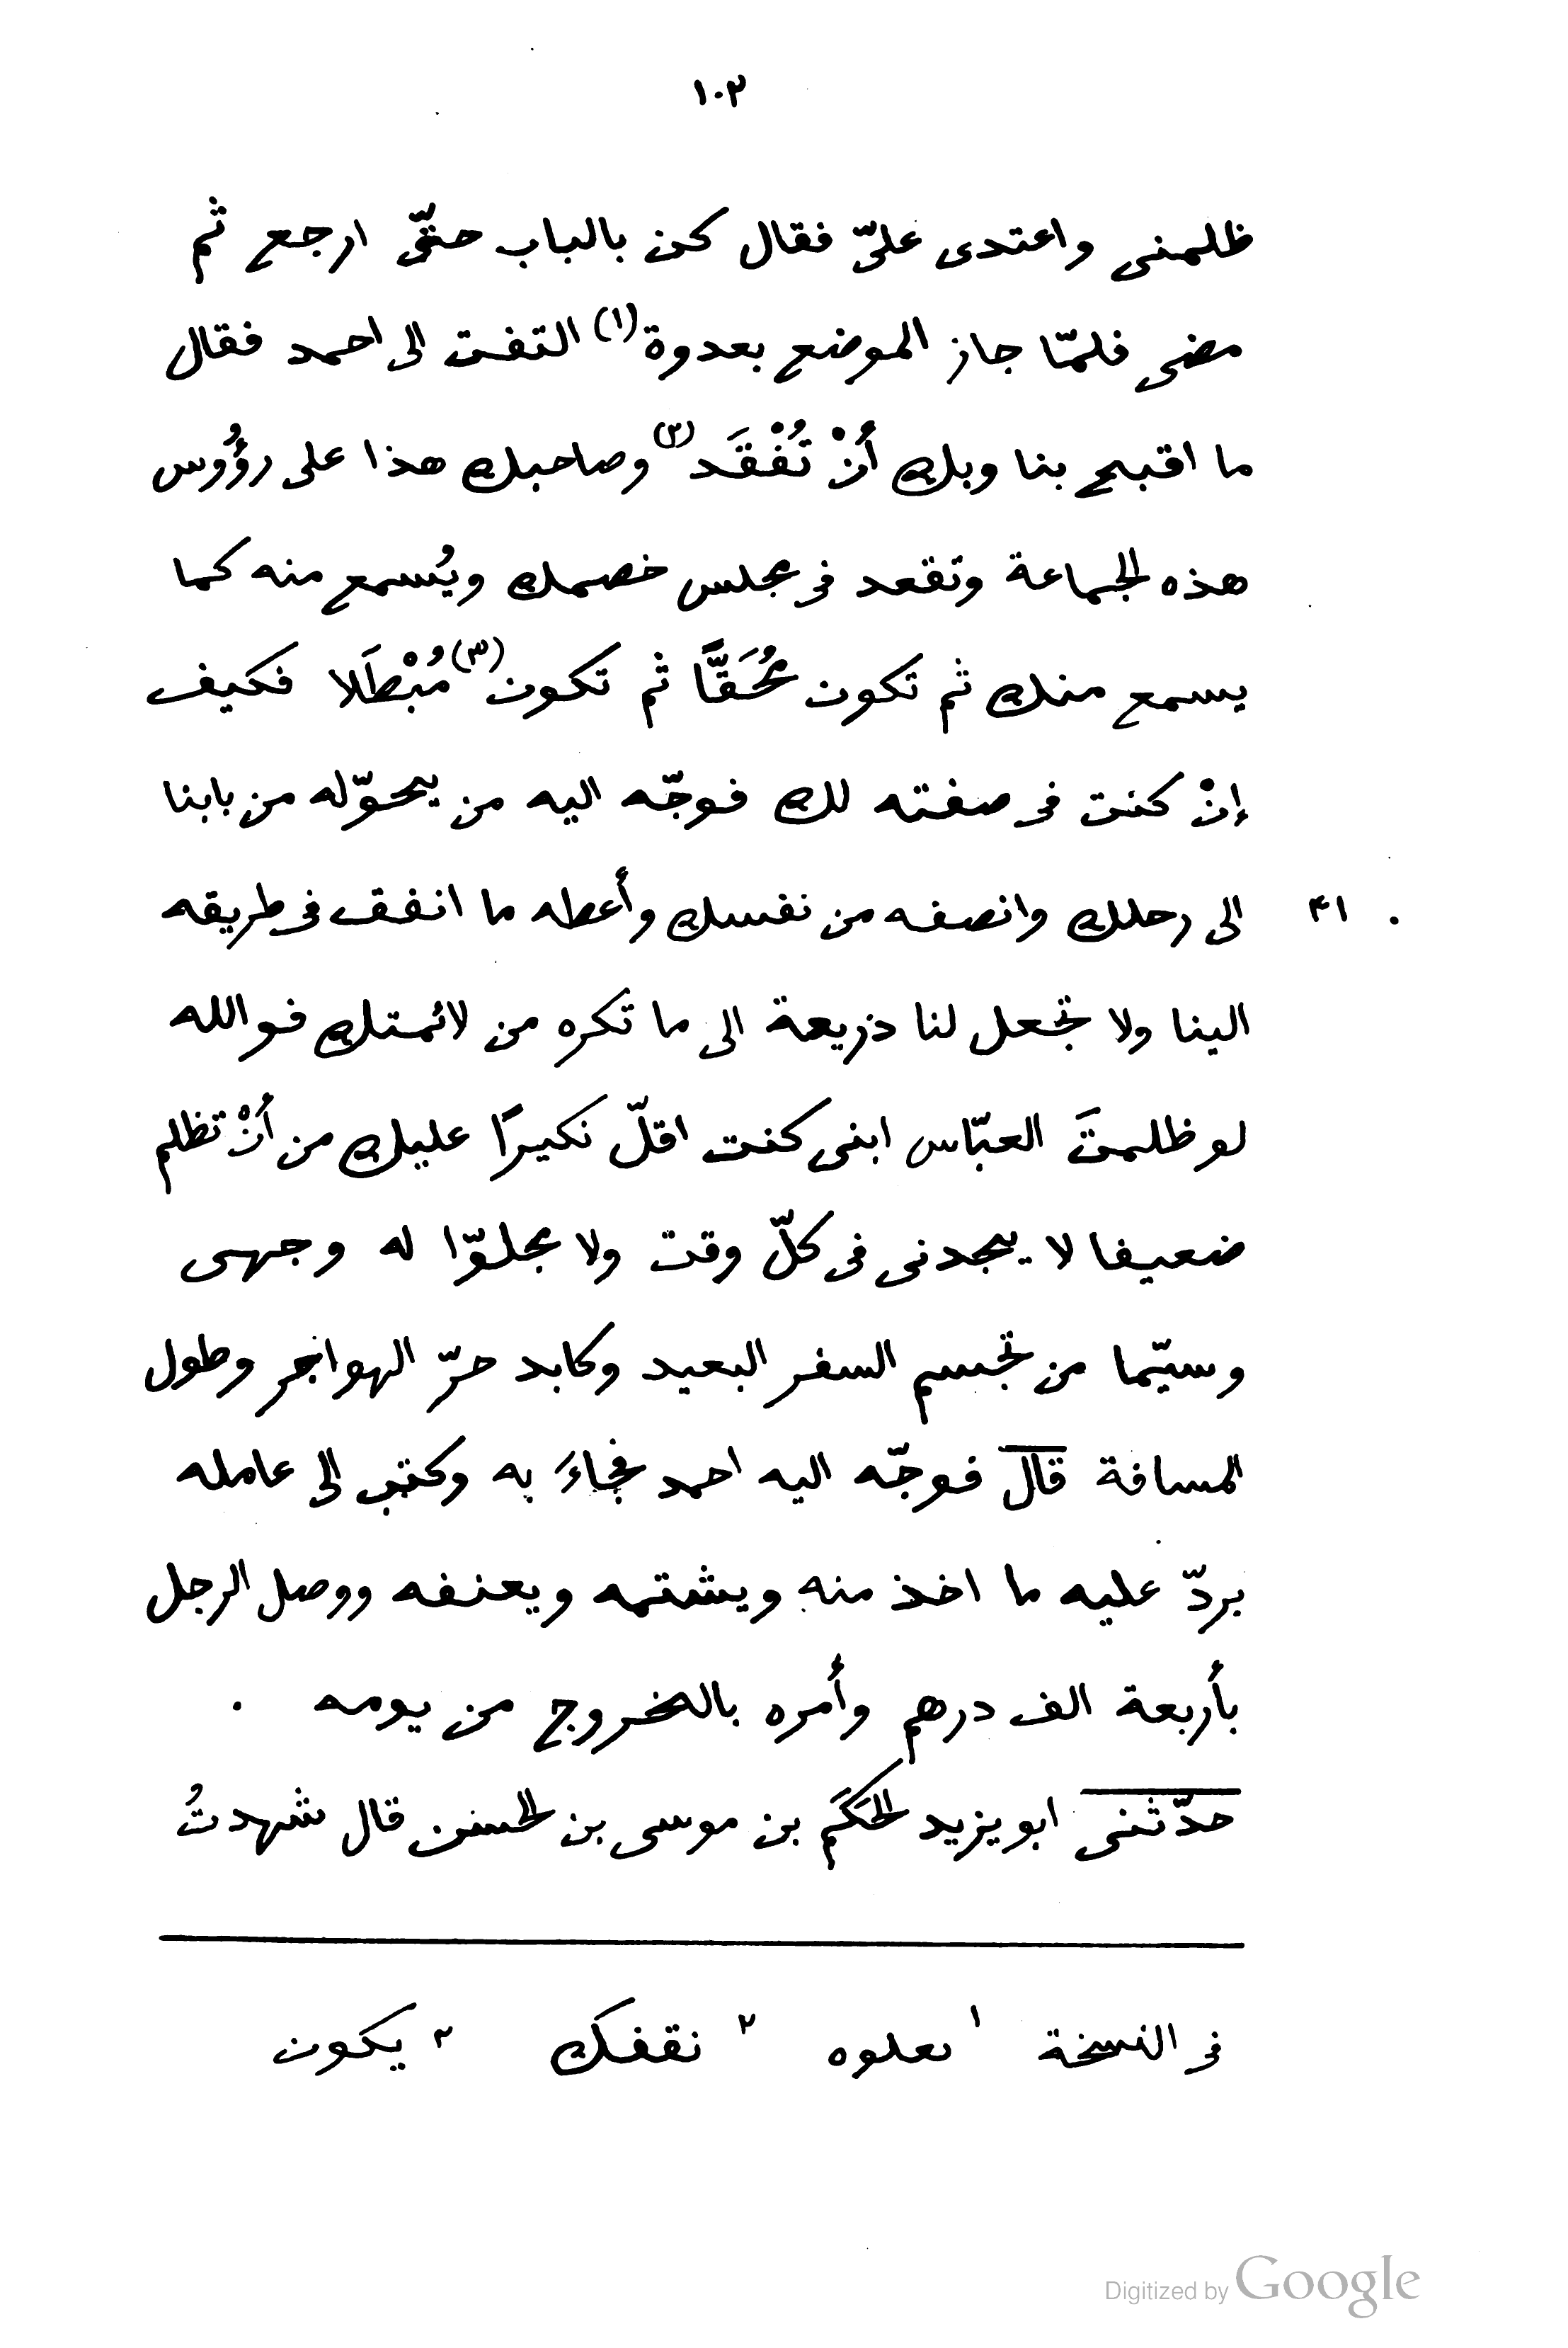 ١٠٣
ظلمنى واعتدى علىّ فقال كن بالباب حتّى ارجع ثم
مضى فلمّا جاز الموضع بعدوة(١) التفت الى احمد فقال
ما اقبح بنا وبك أنْ تُفْقَد(٢) وصاحبك هذا على رؤُوس
هذه الجماعة وتقعد فى مجلس خصمك ويُسمع منه كما
يسمع منك ثم تكون مُحَقًّا ثم تكون(٣) مُبْطَلا فكيف
إنْ كنت فى صفته لك فوجّه اليه من يحوّله من بابنا
الى رحلك وانصفه من نفسك وأعطه ما انفق فى طريقه ٤١
الينا ولا تجعل لنا ذريعة الى ما تكره من لائمتك فوالله
لو ظلمتَ العبّاس ابنى كنت اقلّ نكيرًا عليك من أنْ تظلم
ضعيفا لا يجدنى فى كلّ وقت ولا مجلوّا له وجهى
وسيّما من تجسم السفر البعيد وكابد حرّ الهواجر وطول
المسافة قال فوجّه اليه احمد فجاءَ به وكتب الى عامله
بردّ عليه ما اخذ منه ويشتمه ويعنفه ووصل الرجل
بأربعة الف درهم وأمره بالخروج من يومه .
حدّثنى ابو يزيد الحَكَم بن موسى بن الحسن قال شهدتُ
فى النسخة ١ ٢ نقفك ٣ يكون
Digitized by Google